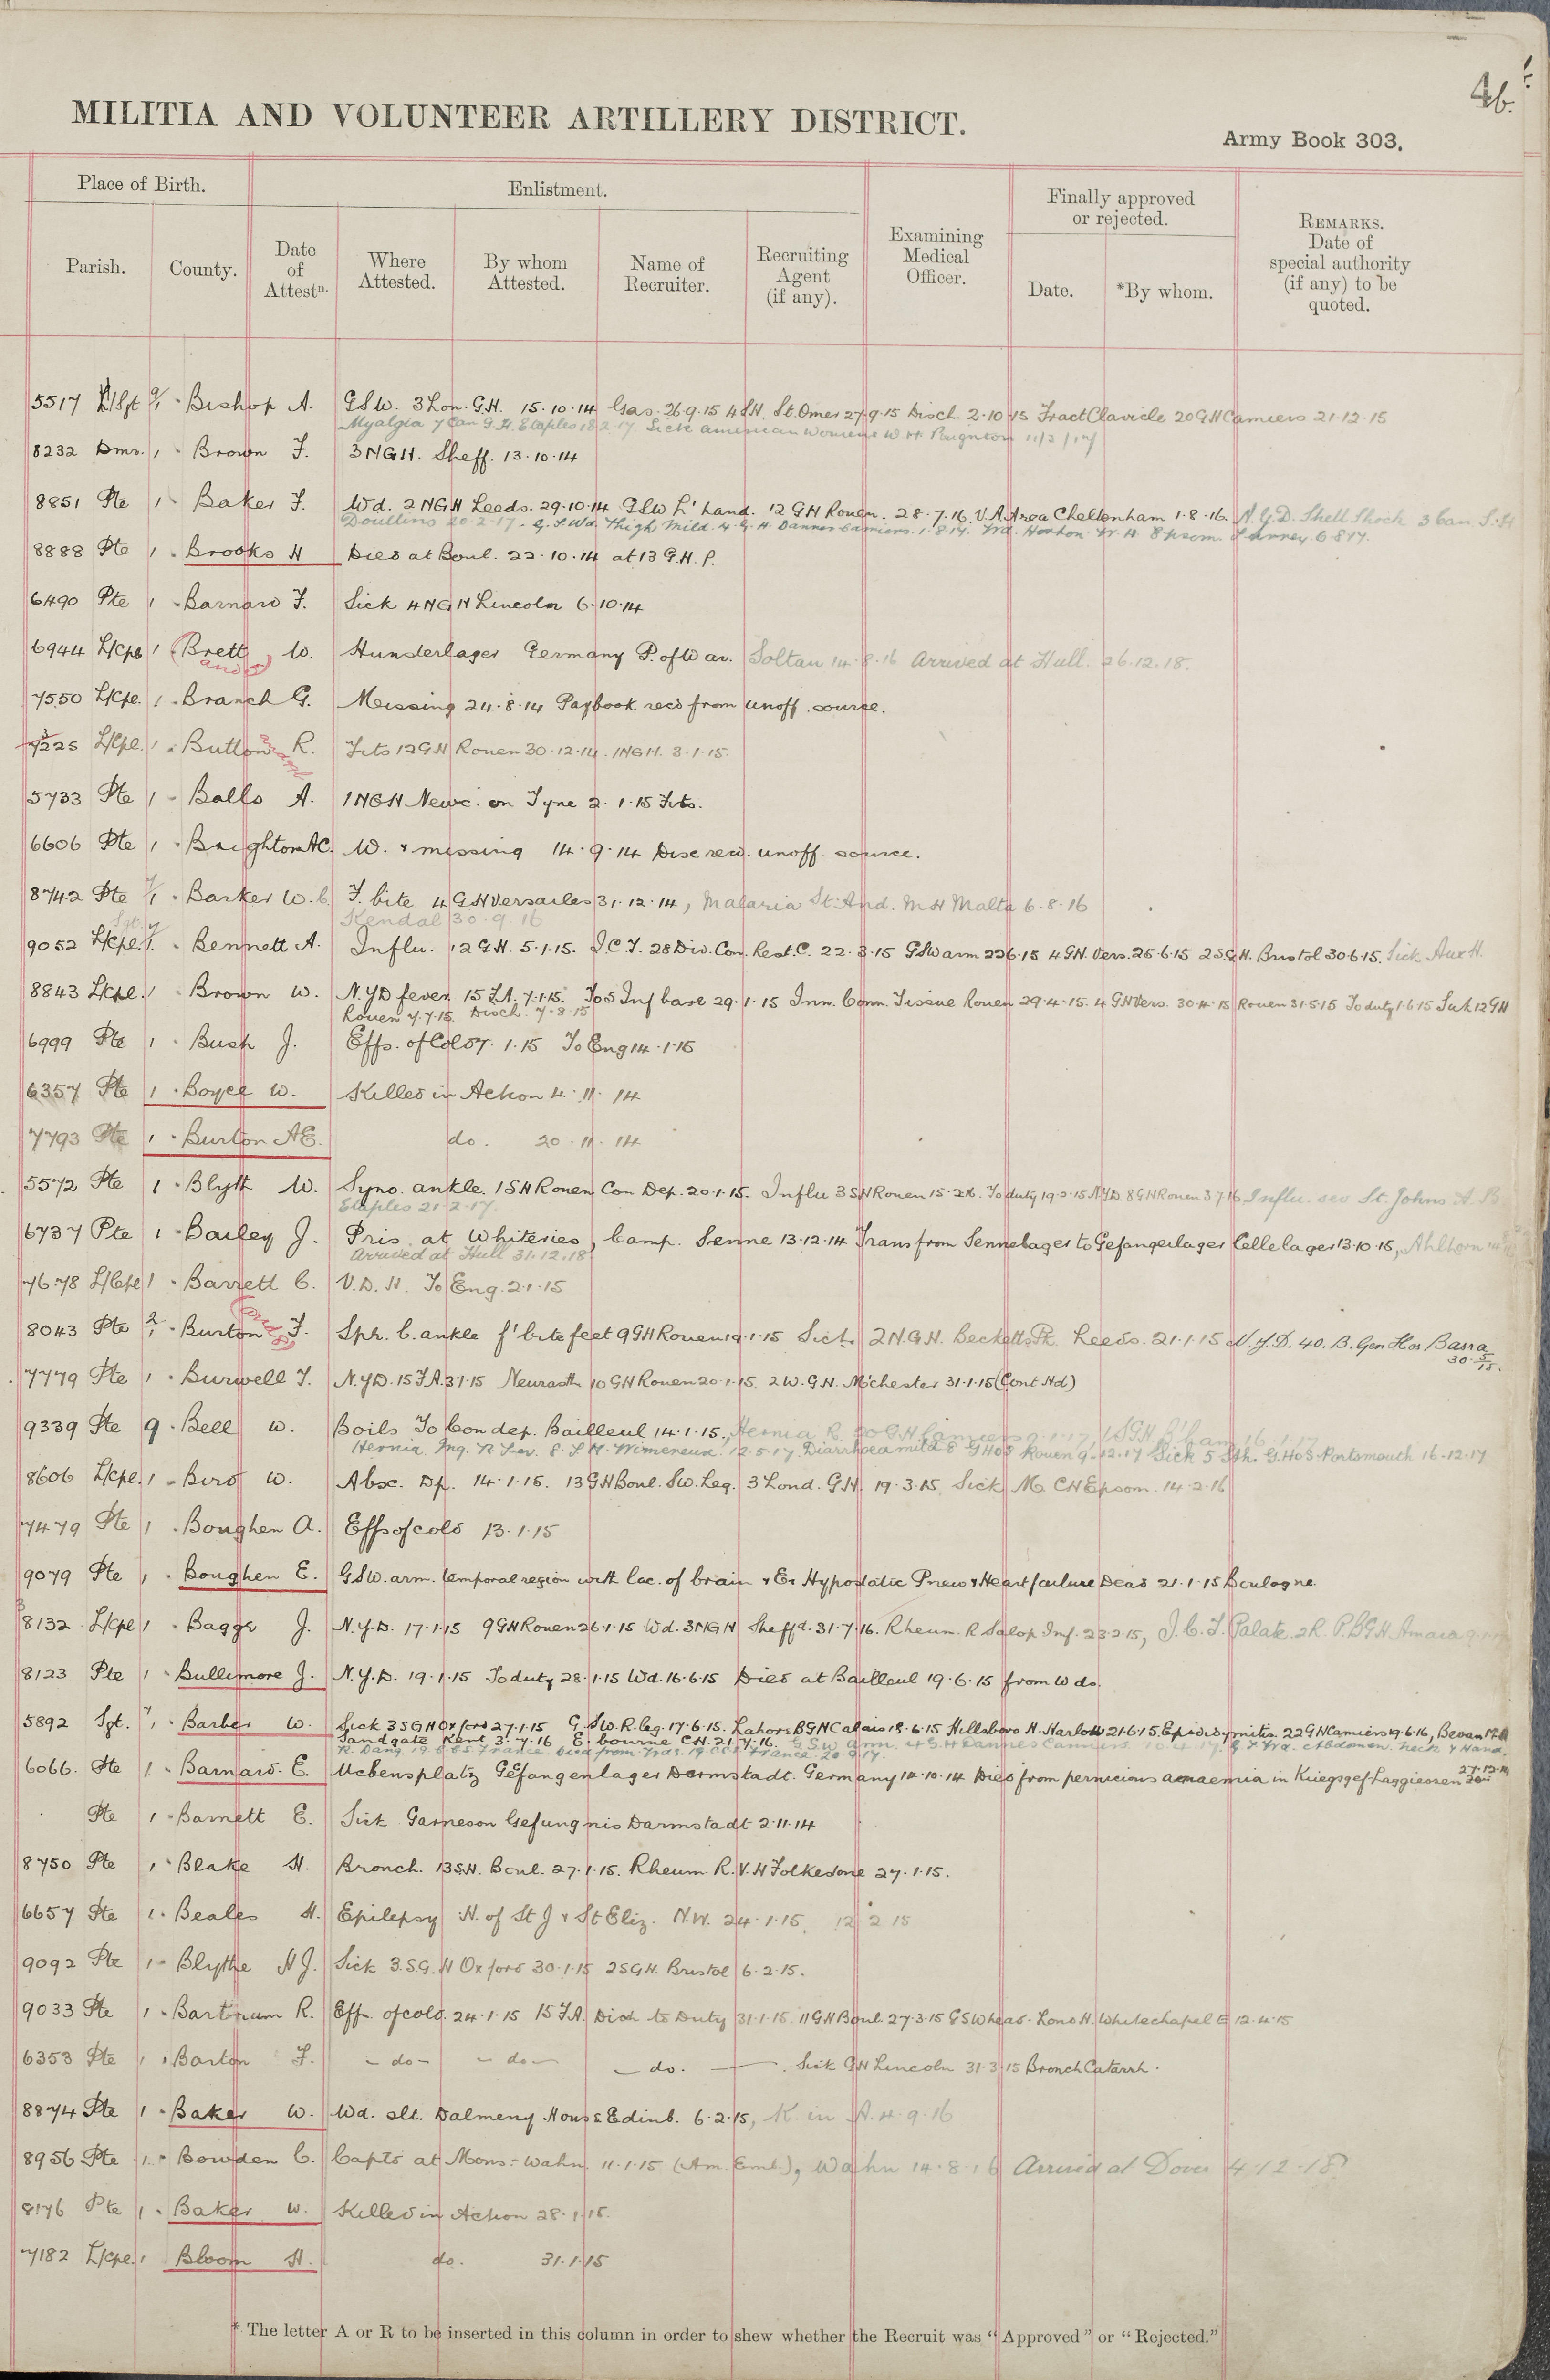 4b.
MILITIA AND VOLUNTEER ARTILLERY DISTRICT.
Army Book 303.
Place of Birth.
Enlistment.
Finally approved or rejected.
Parish.
County.
Date of Attestn.
Where Attested.
By whom Attested.
Name of Recruiter.
Recruiting Agent (if any).
Examining Medical Officer.
Date.
*By whom.
REMARKS. Date of special authority (if any) to be quoted.
5517 L/Sgt 9/1 Bishop A. GSW. 3 Lon. G.H. 15.10.14 Gas. 26.9.15 4 SH. St. Omer 27.9.15 Disch. 2.10.15 Fract Clavicle 20 GH Camiers 21.12.15
Myalgia 7 Can G.H. Etaples 18.2.17. Sick American Womens W.H. Paignton 11/3/17
8232 Dmr. 1 Brown F. 3NGH. Sheff. 13.10.14
8851 Pte 1 Baker F. Wd. 2 NGH Leeds. 29.10.14 GSW L' hand. 12 GH Rouen. 28.7.16. V.A. Area Cheltenham 1.8.16. N.Y.D. Shell Shock 3 Can S.H
Doullens 20.2.17. G.S.Wd. Thigh Mild. 4 G.H. Dannes Camiers. 1.8.17. Wd. Horton W.H. Epsom. Surrey. 6.8.17.
8888 Pte 1 Brooks H Died at Boul. 22.10.14 at 13 G.H. P.
6490 Pte 1 Barnard F. Sick 4 NGH Lincoln 6.10.14
6944 L/Cpl 1 Brett W. Hunderlager Germany P. of War. Soltau 14.8.16 Arrived at Hull. 26.12.18.
7550 L/Cpl. 1 Branch G. Missing 24.8.14 Paybook recd from unoff. source.
7225 L/Cpl. 1 Button R. Fits 12 GH Rouen 30.12.14. 1NGH. 3.1.15.
5733 Pte 1 Balls A. 1 NGH Newc. on Tyne 2.1.15 Fits.
6606 Pte 1 Brighton AC. W. & missing 14.9.14 Disc recd. unoff. source.
8742 Pte 7/1 Barker W.C. F. bite 4 GH Versailes 31.12.14, Malaria St. And. M H Malta 6.8.16
Kendal 30.9.16
9052 L/Cpl. Bennett A. Influ. 12 GH. 5.1.15. I.C.T. 28 Div. Con. Rest. C. 22.3.15 GSW arm 22.6.15 4 GH. Vers. 25.6.15 2SGH. Bristol 30.6.15. Sick Aux H.
8843 L/Cpl. 1 Brown W. N.Y.D fever 15 F.A. 7.1.15. To 5 Inf base 29.1.15 Inn. Conn. Tissue Rouen 29.4.15. 4 GH Vers. 30.4.15 Rouen 31.5.15 To duty 1.6.15 Sick 12 GH
Rouen 7.7.15. Disch. 7.8.15
6999 Pte 1 Bush J. Effs. of Cold 7.1.15 To Eng 14.1.15
6357 Pte 1 Boyce W. Killed in Action 4.11.14
7793 Pte 1 Burton AE. do. 20.11.14
5572 Pte 1 Blyth W. Syno. ankle. 1SH Rouen Con Dep. 20.1.15. Influ 3 SH Rouen 15.2.15. To duty 19.2.15 N.Y.D. 8 GH Rouen 3.7.16 Influ. sev St. Johns A. B
Etaples 21.2.17.
6737 Pte 1 Bailey J. Pris. at Whiteries, Camp. Senne 13.12.14 Trans from Sennelager to Gefangerlager Cellelager 13.10.15, Ahlhorn
Arrived at Hull 31.12.18
7678 L/Cpl 1 Barrett C. V.D.H. To Eng. 2.1.15
8043 Pte 2/1 Burton F. Spr. L. ankle f'bite feet 9 GH Rouen 19.1.15 Sick 2 N.G.H. Becketts Pk. Leeds. 21.1.15 N.Y.D. 40. B. Gen Hos. Basra
7779 Pte 1 Burwell T. N.Y.D. 15 F.A. 3.1.15 Neurasth 10 GH Rouen 20.1.15. 2 W.G.H. M'chester 31.1.15 (Cont Hd)
9339 Pte 9 Bell W. Boils To Con dep. Bailleul 14.1.15., Hernia R. 20 G.H. Camiers 9.1.17, 1 SGH B'ham 16.1.17
Hernia. Ing. R Sev. 8. S H. Wimereux. 12.5.17. Diarrhoea mild 8 GHos Rouen 9.12.17 Sick 5 Sth. G. Hos. Portsmouth 16.12.17
8606 L/Cpl. 1 Bird W. Absc. Dp. 14.1.15. 13 GH Boul. Sw. Leg. 3 Lond. G.H. 19.3.15. Sick M. CH Epsom. 14.2.16
7479 Pte 1 Boughen A. Effs of cold 13.1.15
9079 Pte 1 Boughen E. GSW. arm. temporal region with lac. of brain & Er Hypostatic Pneu & Heart failure Dead 21.1.15 Boulogne.
8132 L/Cpl 1 Baggs J. N.Y.D. 17.1.15 9 GH Rouen 26.1.15 Wd. 3NGH Sheffd. 31.7.16. Rheum. R Salop Inf. 23.2.15, I.C.T. Palate 2R. P. BGH Amara
8123 Pte 1 Bullimore J. N.Y.D. 19.1.15 To duty 28.1.15 Wd. 16.6.15 Died at Bailleul 19.6.15 from Wds.
5892 Sgt. Barber W. Sick 3SGH Oxford 27.1.15 G.SW. R. leg. 17.6.15. Lahore BGH Calais 18.6.15 Hillsboro H. Harlow 21.6.15 Epididymitis. 22 GH Camiers 19.6.16, Bevan
Sandgate Kent 3.7.16 E'bourne CH. 21.7.16. G.S.W arm. 4 G.H Dannes Camiers. 10.4.17. G.S. Wd. Abdomen. Neck & Hand.
France. Died from Wds. 19 C.C.S. France. 20.9.17.
6066. Pte 1 Barnard. E. Uebensplatz Gefangenlager Darmstadt. Germany 14.10.14 Died from pernicious anaemia in Kriegsgef Laggiessen
Pte 1 Barnett E. Sick Garneson Gefungnis Darmstadt 2.11.14
8750 Pte 1 Blake H. Bronch. 13 S.H. Boul. 27.1.15. Rheum. R.V.H Folkestone 27.1.15.
6657 Pte 1 Beales H. Epilepsy H. of St J & St Eliz. N.W. 24.1.15. 12.2.15
9092 Pte 1 Blythe H J. Sick 3.S.G.H Oxford 30.1.15 2SGH. Bristol 6.2.15.
9033 Pte 1 Bartrum R. Eff. of cold. 24.1.15 15 F.A. Disch to Duty 31.1.15. 11 GH Boul 27.3.15 GSW head. Lond H. Whitechapel E 12.4.15
6353 Pte 1 Barton F. do do do. Sick GH Lincoln 31.3.15 Bronch Catarrh.
8874 Pte 1 Baker W. Wd. slt. Dalmeny House Edinb. 6.2.15, K. in A. 4.9.16
8956 Pte 1 Bowden C. Captd at Mons:- Wahn 11.1.15 (Am. Emb.), Wahn 14.8.16 Arrived at Dover 4.12.18
8176 Pte 1 Baker W. Killed in Action 28.1.15.
7182 L/Cpl. 1 Bloom H. do. 31.1.15
* The letter A or R to be inserted in this column in order to shew whether the Recruit was "Approved" or "Rejected."